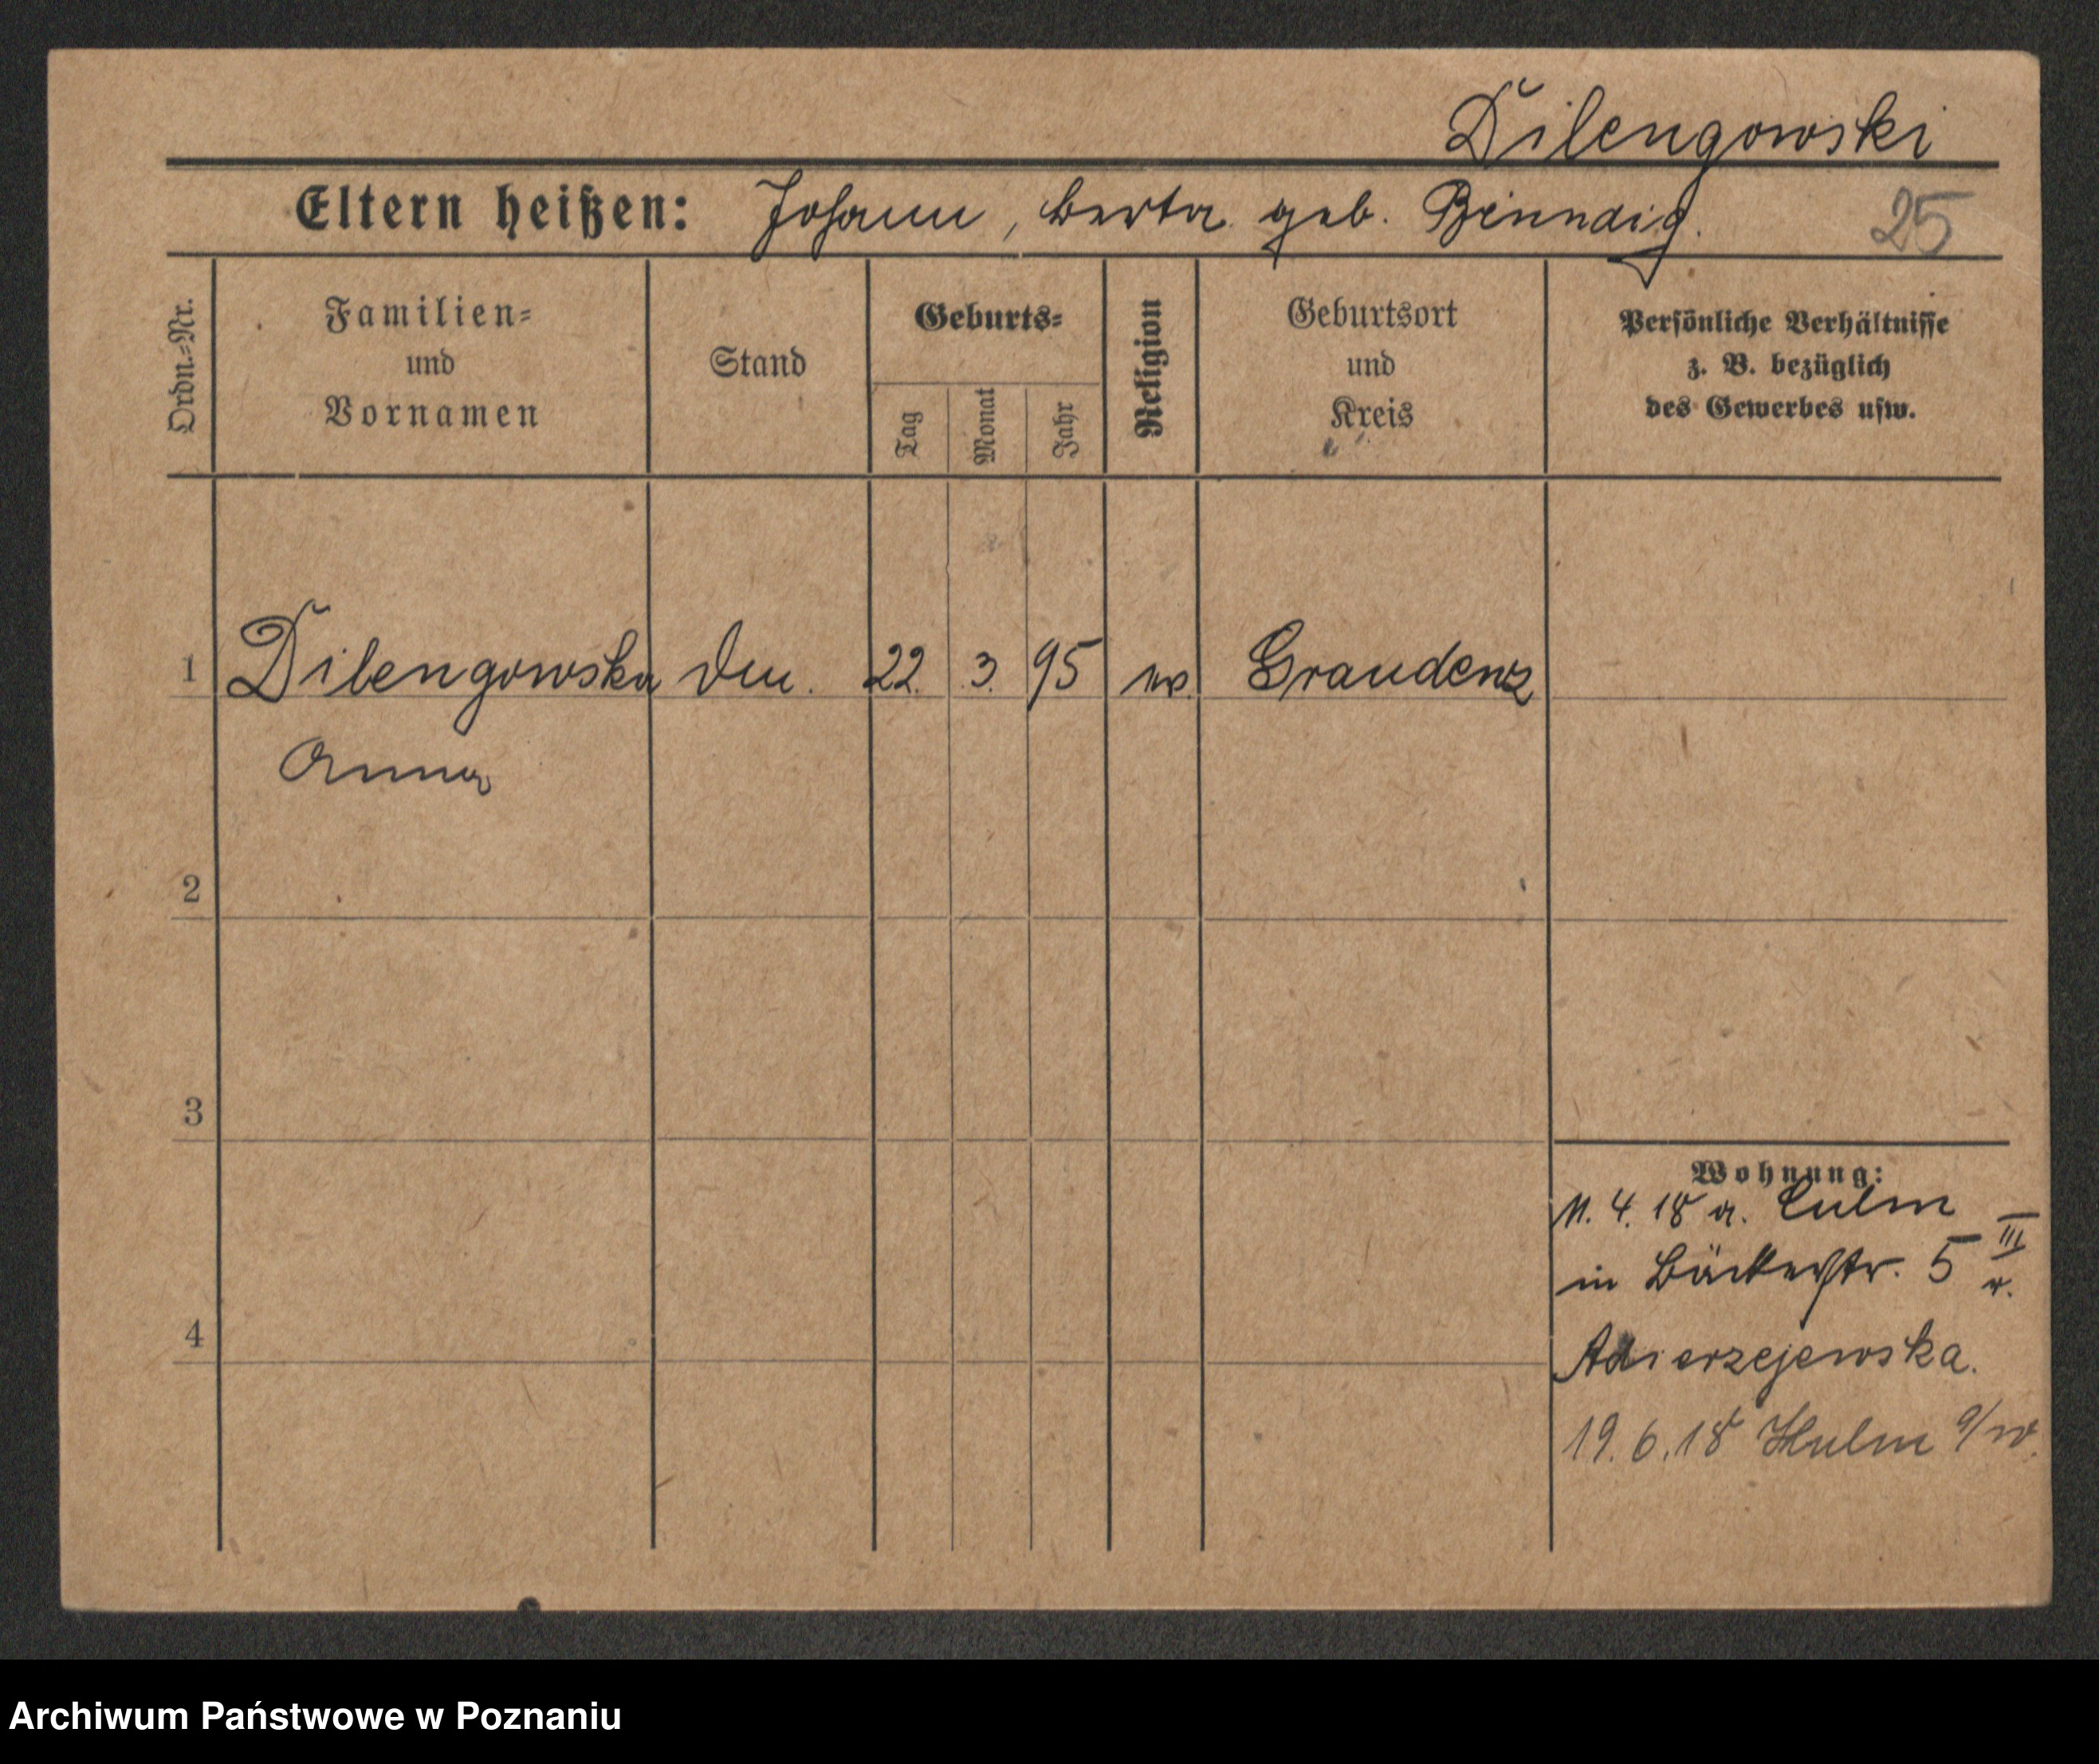 Dilengowski
Eltern heißen: Johann, Berta geb. Binndig.
25
Ordn.-Nr.
Familien-
und
Vornamen
Stand
Geburts-
Tag
Monat
Jahr
Religion
Geburtsort
und
Kreis
Persönliche Verhältnisse
z. B. bezüglich
des Gewerbes usw.
1 Dilengowska 22. 3. 95 Graudenz
Anna
2
3
4
Wohnung:
11. 4. 18 a. Culm
in Bäckerstr. 5 III
r.
19. 6. 18 Kulm
Archiwum Państwowe w Poznaniu